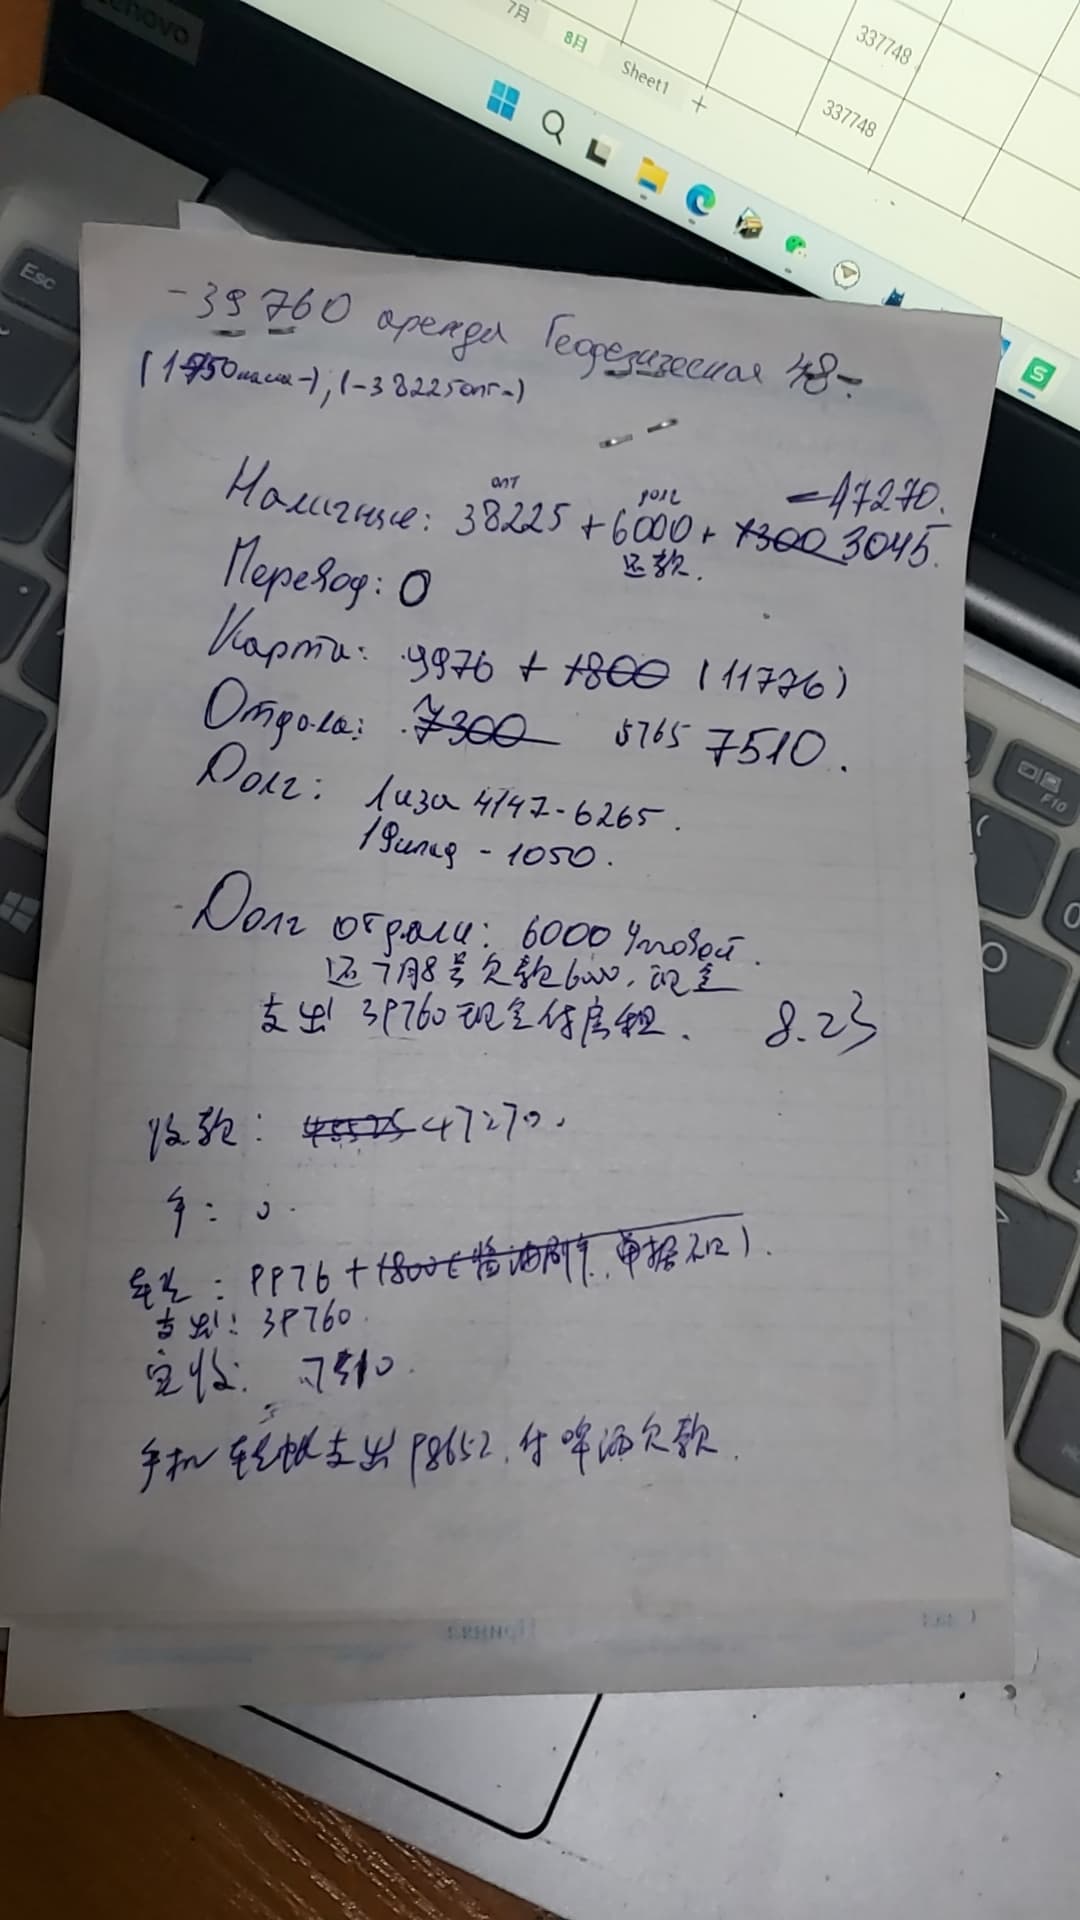 enovo
7月
8月
Sheet1
+
337748
337748
Esc
F10
-39760 аренда Геодезическая 48.
(-38225опт-)
Наличные: 38225 + 6000 + 1300 3045.
опт
долг
-47270.
还款.
Перевод: 0
Карта: 9976 + 1800 (11776)
Отдала: 7300 5765 7510.
Долг: Лиза 4147-6265.
- 1050.
Долг отдали: 6000
还7月8号欠款6000,现金
支出39760现金付房租. 8.23
收款: 47270.
卡: 0.
转账: 9976 + 1800 (酱油刷卡, 单据不口).
支出: 39760.
实收: 7510.
手机转帐支出98652,付啤酒欠款.